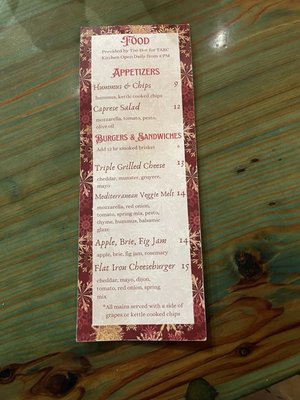 Food
Provided by The Hot for TABC
Kitchen Open Daily from 4 PM
Appetizers
Hummus & Chips 9
hummus, kettle cooked chips
Caprese Salad 12
mozzarella, tomato, pesto,
olive oil
Burgers & Sandwiches
Add 12 hr smoked brisket
Triple Grilled Cheese 13
cheddar, munster, gruyere,
mayo
Mediterranean Veggie Melt 14
mozzarella, red onion,
tomato, spring mix, pesto,
thyme, hummus, balsamic
glaze
Apple, Brie, Fig Jam 14
apple, brie, fig jam, rosemary
Flat Iron Cheeseburger 15
cheddar, mayo, dijon,
tomato, red onion, spring
mix
*All mains served with a side of
grapes or kettle cooked chips